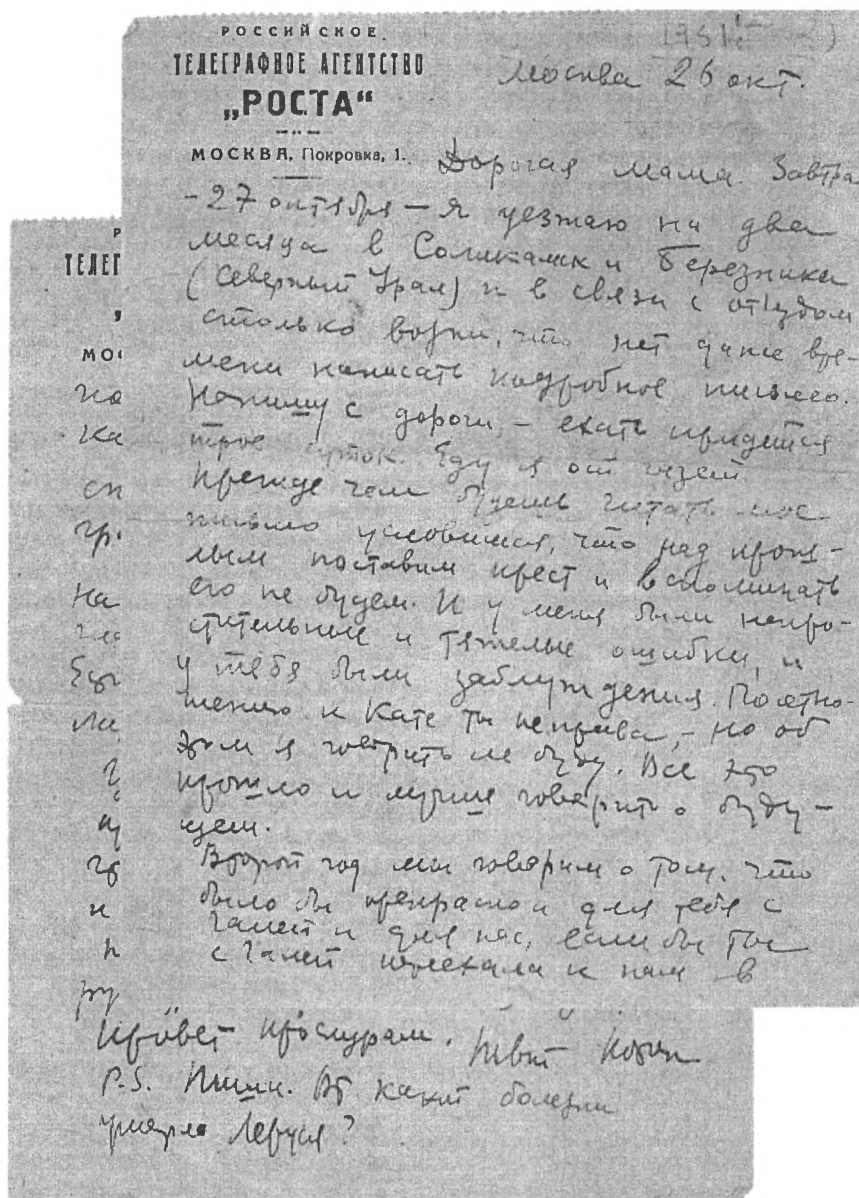 РОССИЙСКОЕ
ТЕЛЕГРАФНОЕ АГЕНТСТВО
„РОСТА“
МОСКВА, Покровка, 1.
Москва 26 окт.
Дорогая мама. Завтра
- 27 октября — я уезжаю на два
месяца в Соликамск и Березники
(Северный Урал) и в связи с отъездом
столько возни, что нет даже вре-
мени написать подробное письмо.
Напишу с дороги, – ехать придется
трое суток. Еду я от
Прежде чем будешь читать мое
письмо условимся, что над прош-
лым поставим крест и вспоминать
его не будем. И у меня были непро-
стительные и тяжелые ошибки, и
у тебя были заблуждения. По отно-
шению к Кате ты неправа, – но об
этом я говорить не буду. Все это
прошло и лучше говорить о буду-
щем.
Второй год мы говорим о том, что
было бы прекрасно и для тебя с
Галей и для нас, если бы ты
с Галей переехала к нам в
ТЕЛЕГ
МО
на
ка
сп
гр
на
Привет Проскурам. Твой Котик
P.S. Пиши. От какой болезни
умерла Леруся?